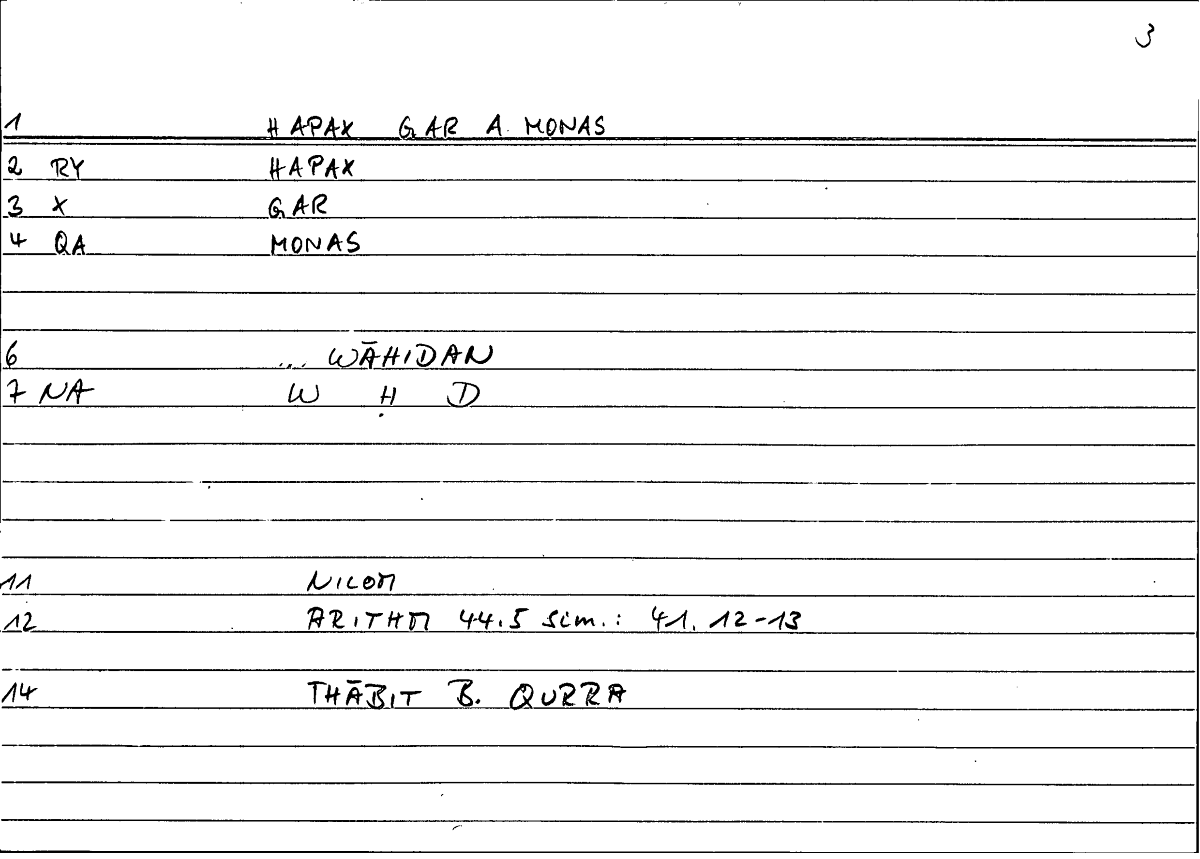 3
1 HAPAX GAR A. MONAS
2 RY HAPAX
3 X GAR
4 QA MONAS
6 ... WĀHIDAN
7 NA W Ḥ D
11 NICOM
12 ARITHM 44.5 sim.: 41.12-13
14 THĀBIT B. QURRA